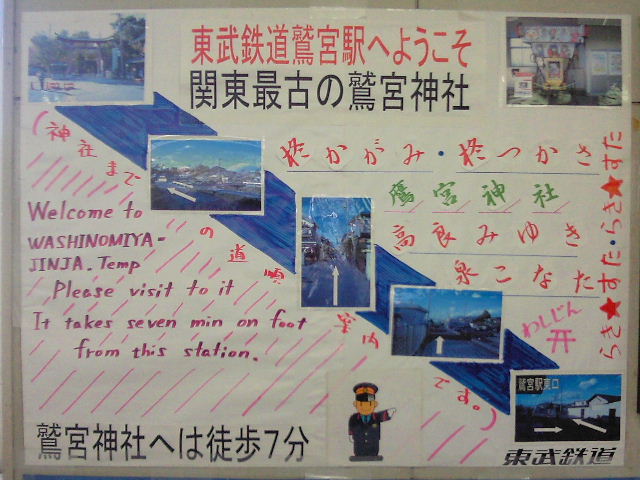 東武鉄道鷲宮駅へようこそ
関東最古の鷲宮神社
(神社までの道順案内です。)
柊かがみ・柊つかさ
鷹宮神社
高良みゆき
泉こなた
らき★すた・らき★すた
Welcome to
WASHINOMIYA-
JINJA. Temp
Please visit to it
It takes seven min on foot
from this station.
わしじん
鷲宮駅東口
鷲宮神社へは徒歩7分
東武鉄道